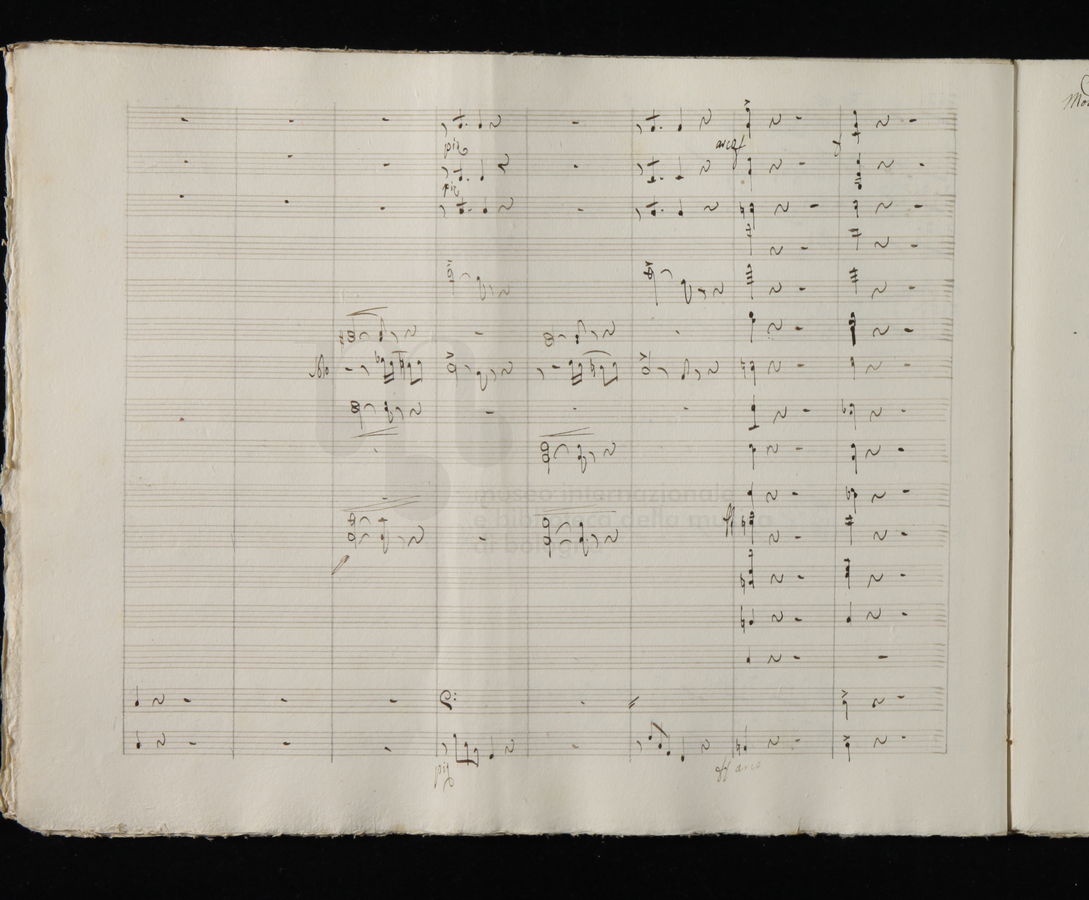 pizz
arco f
f
pizz
Solo
museo internazionale
e biblioteca della musica
di bologna
ff
pizz
ff arco